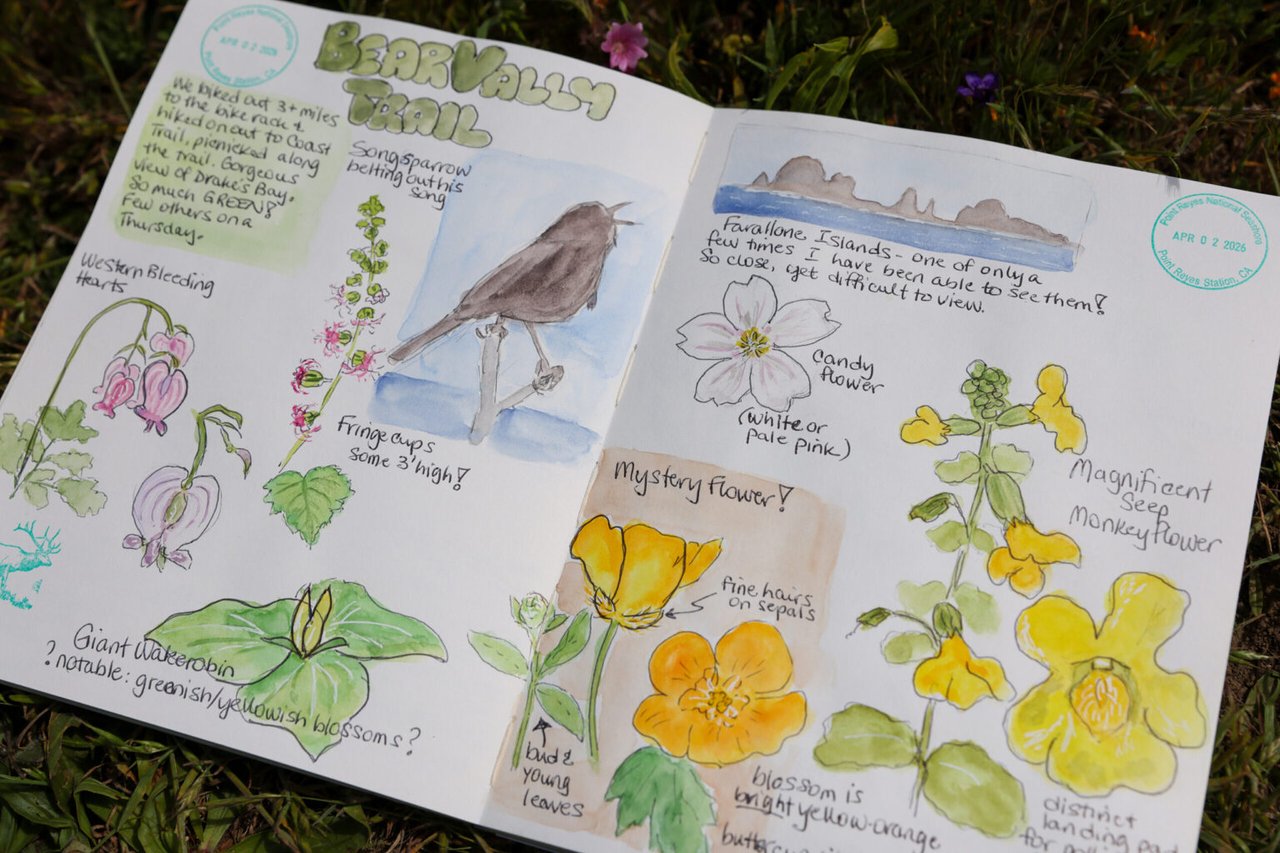 Point Reyes National Seashore
APR 02 2026
Point Reyes Station, CA
BEAR VALLY
TRAIL
We biked out 3+ miles
to the bike rack &
hiked on out to Coast
Trail, picnicked along
the trail. Gorgeous
view of Drakes Bay.
So much GREEN!
Few others on a
Thursday.
Song sparrow
belting out his
song
Western Bleeding
Hearts
Fringe cups
some 3' high!
Giant Wakerobin
? notable: greenish/yellowish blossoms?
Farallone Islands - one of only a
few times I have been able to see them!
So close, yet difficult to view.
Point Reyes National Seashore
APR 02 2026
Point Reyes Station, CA
Candy
flower
(white or
pale pink)
Magnificent
Seep
Monkeyflower
Mystery flower!
fine hairs
on sepals
bud &
young
leaves
blossom is
bright yellow-orange
distinct
landing pad
for